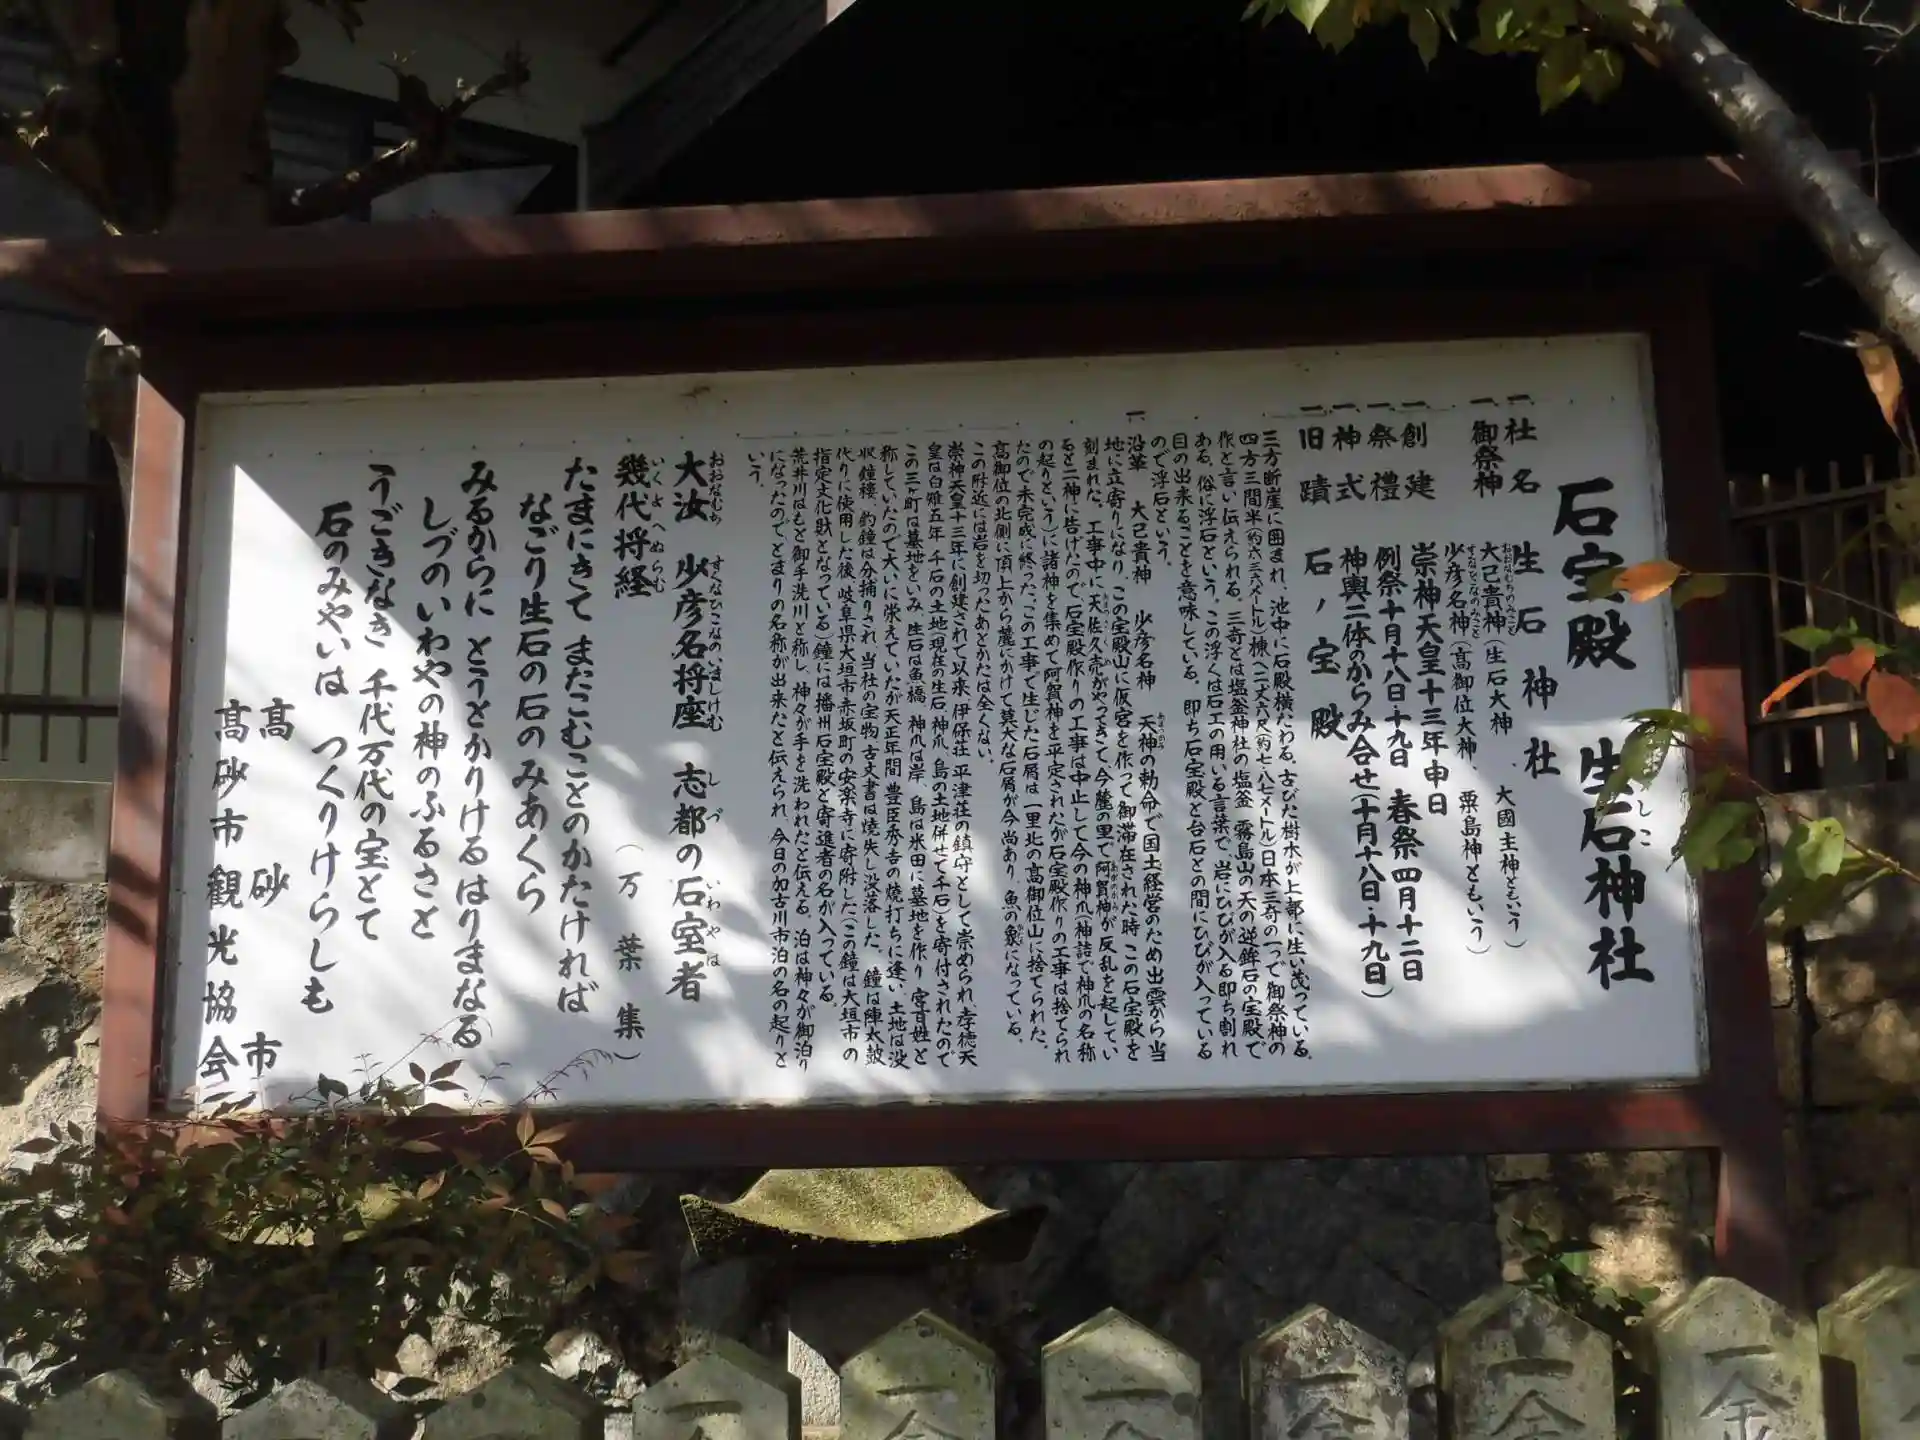 石宝殿 生石神社
しこ
一、社名 生石神社
一、御祭神 大己貴神(生石大神 、大國主神ともいう)
おおなむちのみこと
少彦名神(高御位大神、粟島神ともいう)
すなひこなのみこと
一、創建 崇神天皇十三年申日
一、祭禮 例祭十月十八日・十九日 春祭四月十二日
一、神式 神輿二体のからみ合せ(十月十八日・十九日)
一、旧蹟 石ノ宝殿
三方断崖に囲まれ、池中に石殿横たわる。古びた樹木が上部に生い茂っている。
四方三間半(約六・三六メートル)棟へ二丈六尺(約七・八七メートル)日本三奇の一つで御祭神の
作と言い伝えられる。三奇とは塩釜神社の塩釜 霧島山の天の逆鉾石の宝殿で
ある。俗に浮石という。この浮くは石工の用いる言葉で、岩にひびが入る即ち割れ
目の出来ることを意味している。即ち石宝殿と台石との間にひびが入っている
ので浮石という。
一、沿革 大己貴神 少彦名神 天神の勅命で国土経営のため出雲から当
地に立寄りになり、この宝殿山に仮宮を作って御滞在された時 この石宝殿を
刻まれた。工事中に天佐久売がやってきて、今麓の里で阿賀神が反乱を起してい
ると二神に告げたので、石宝殿作りの工事は中止して今の神爪(神詰で神爪の名称
の起りという)に諸神を集めて阿賀神を平定されたが石宝殿作りの工事は捨てられ
たので未完成に終った。この工事で生じた石屑は一里北の高御位山に捨てられた。
高御位の北側に頂上から麓にかけて莫大な石屑が今尚あり、魚の象になっている。
この附近には岩を切ったあとかたは全くない。
崇神天皇十三年に創建されて以来、伊保荘 平津荘の鎮守として崇められ、孝徳天
皇は白雉五年 千石の土地(現在の生石、神爪、島の土地併せて千石)を寄付されたので
この三ヶ町は墓地をいみ、生石は魚橋、神爪は岸、島は米田に墓地を作り、宮百姓と
称していたので大いに栄えていたが天正年間 豊臣秀吉の焼打ちに逢い、土地は没
収、鐘楼、釣鐘は分捕りされ、当社の宝物 古文書は焼失し没落した。鐘は陣太鼓
代りに使用した後、岐阜県大垣市赤坂町の安楽寺に寄附した(この鐘は大垣市の
指定文化財となっている)鐘には播州石宝殿と寄進者の名が入っている。
荒井川はもと御手洗川と称し、神々が手を洗われたと伝える。泊は神々が御泊り
になったので、とまりの名称が出来たと伝えられ、今日の加古川市泊の名の起りと
いう。
大汝 少彦名将座 志都の石室者
おおなむち すくなひこなのいましけむ しづ いわやは
幾代将経 (万葉集)
いくよへぬらむ
たまにきて またこむことのかたければ
なごり生石の石のみあくら
みるからに とうとかりけるはりまなる
しづのいわやの神のふるさと
うごきなき 千代万代の宝とて
石のみやいは つくりけらしも
高砂市
高砂市観光協会
一金
一金
一金
一金
一金
一金